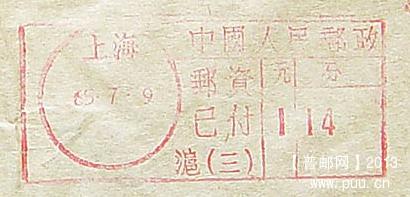 上海
85.7.9
中國人民郵政
郵資
已付
元 分
1 14
滬(三)
【普邮网】2013
www.puu.cn